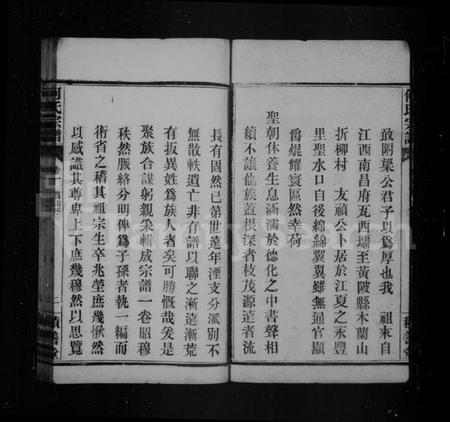 敢附梁公君子以爲厚也我　祖來自
江西南昌府瓦西壩至黃陂縣木蘭山
折柳村　友禎公卜居於江夏之永豐
里里水口自後綿綿翼翼雖無通官顯
爵焜耀寰區然幸荷
聖朝休養生息涵濡於德化之中書聲相
續不讓他族蓋根深者枝茂源遠者流
長有固然已第世遠年湮支分派別不
無散軼遺亡非有譜以聯之漸遠漸荒
有扳異姓爲族人者矣可勝慨哉爰是
聚族合謀躬親釆輯成宗譜一卷昭穆
秩然脈絡分明俾爲子孫者執一編而
術省之稽其祖宗生卒兆塋庶幾愀然
以感識其尊卑上下庶幾穆然以思覽
何氏宗譜
二
積善堂